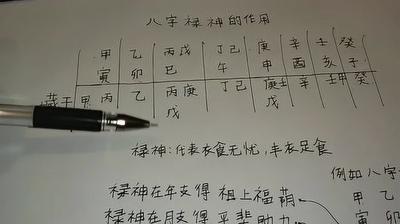 八字禄神的作用
甲 乙 丙戊 丁己 庚 辛 壬 癸
寅 卯 巳 午 申 酉 亥 子
藏干 甲丙戊 乙 丙庚戊 丁己 庚壬戊 辛 壬甲 癸
禄神:代表衣食无忧,丰衣足食
例如八字
禄神在年支得 祖上福荫 甲 乙
禄神在月支得 平辈助力 寅 卯